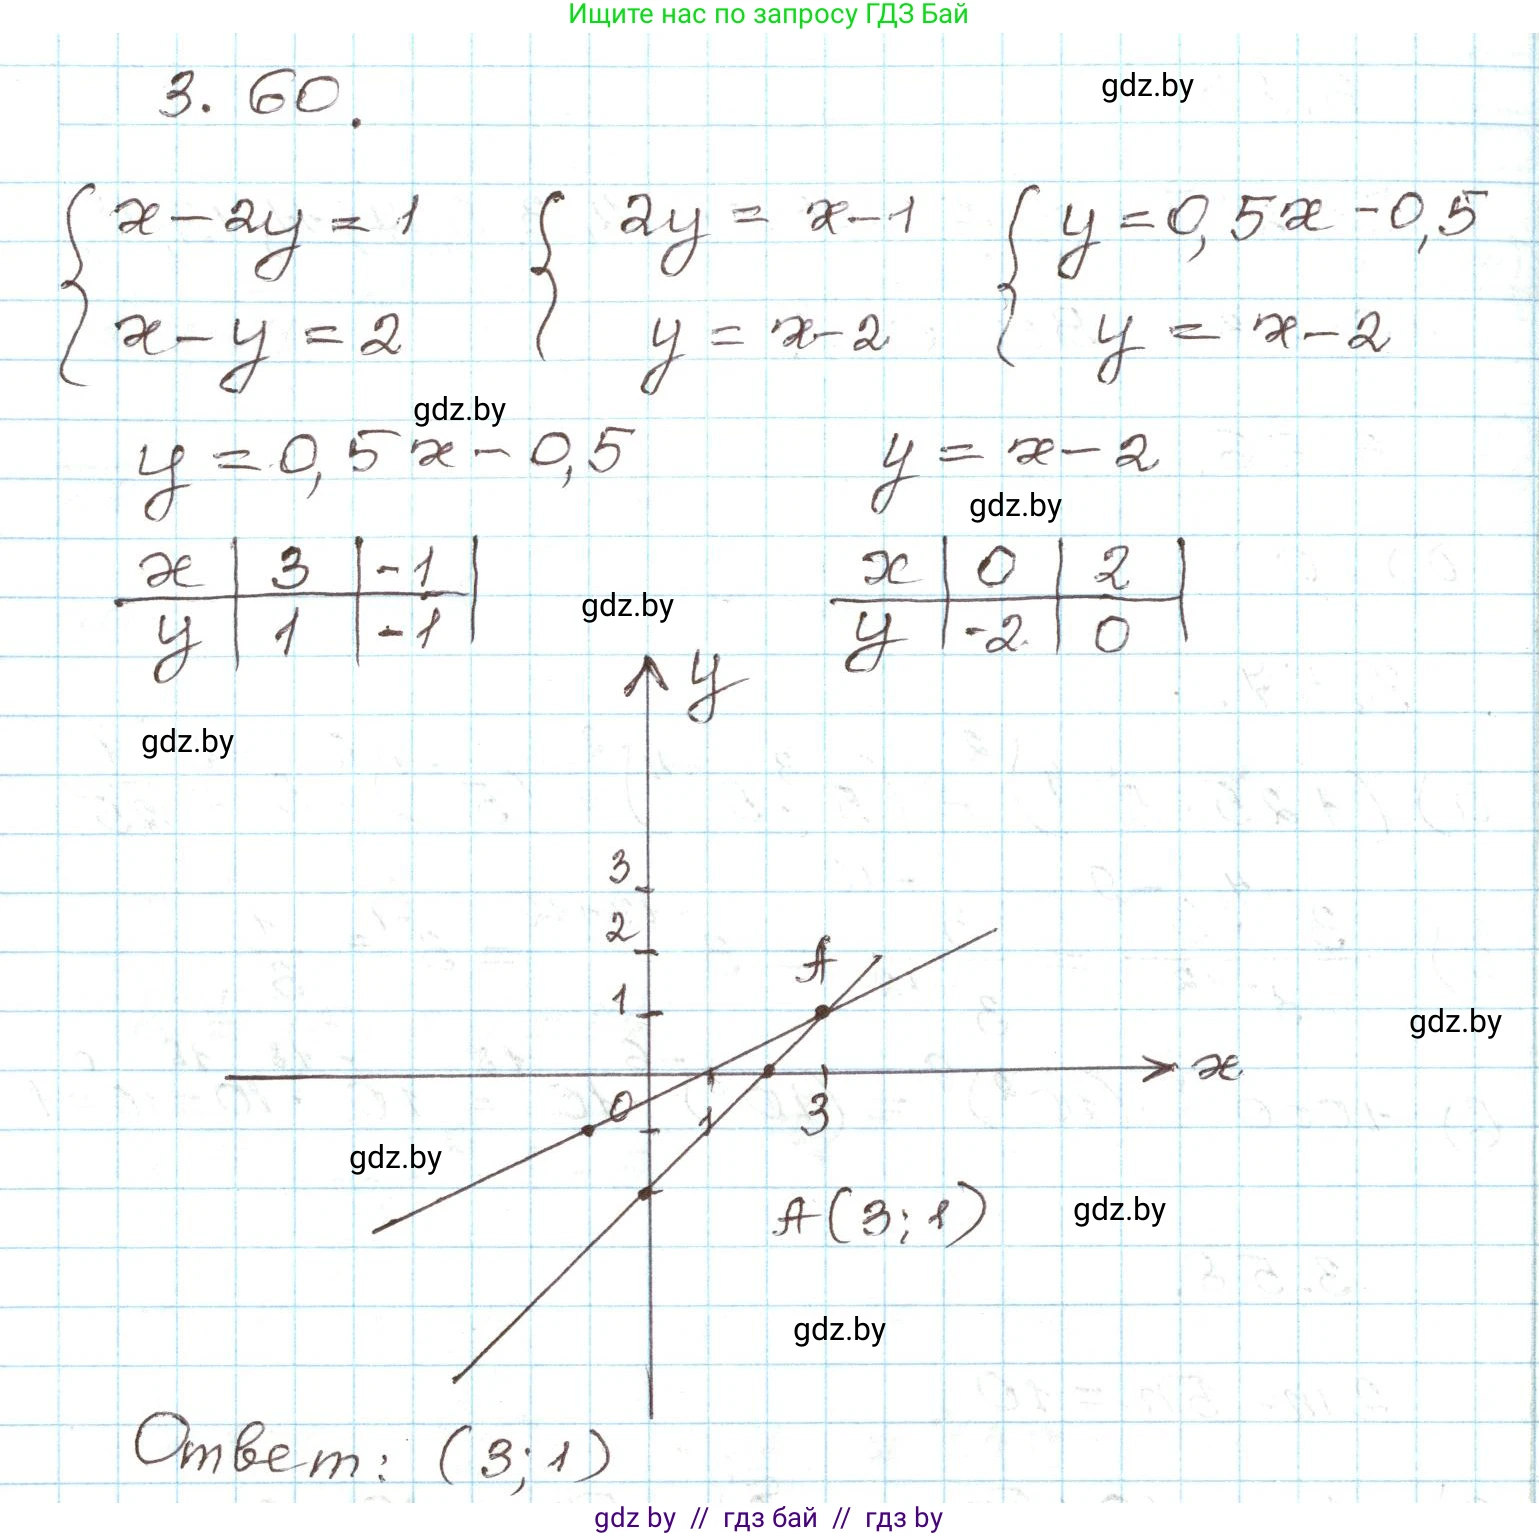 Ищите нас по запросу ГДЗ Бай
3. 60.
gdz.by
{ x - 2y = 1 { 2y = x - 1 { y = 0,5x - 0,5
x - y = 2 y = x - 2 y = x - 2
gdz.by
y = 0,5x - 0,5 y = x - 2
gdz.by
x | 3 | -1 | x | 0 | 2 |
gdz.by
y | 1 | -1 | y | -2 | 0 |
y
gdz.by
3
2
A
1
gdz.by
x
0 1 3
gdz.by
A(3; 1) gdz.by
gdz.by
Ответ: (3; 1)
gdz.by // гдз бай // гдз by